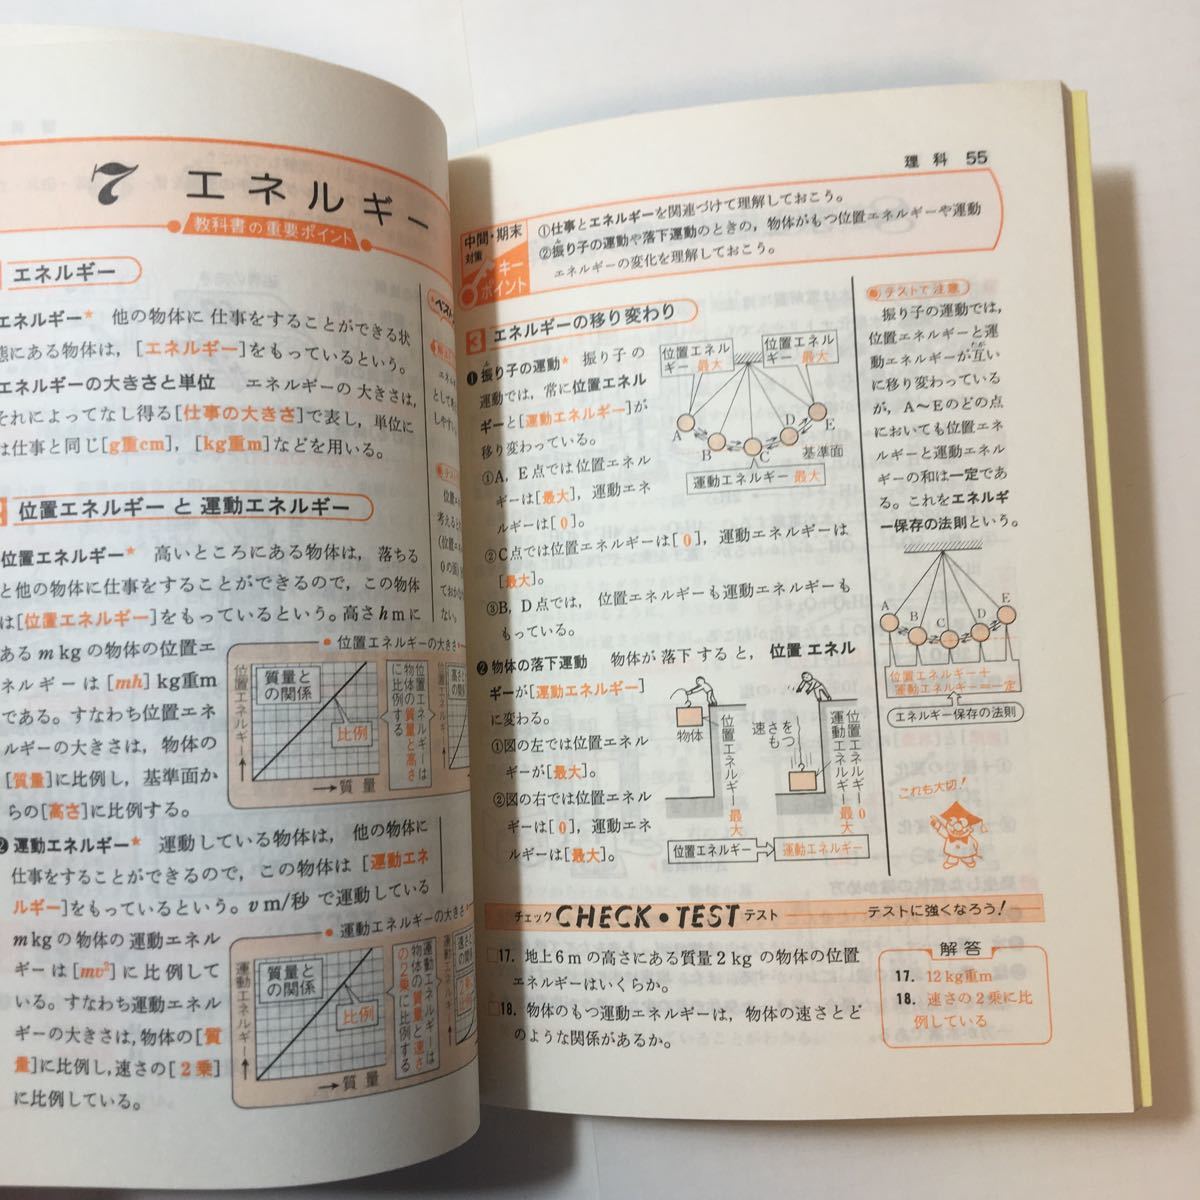 7 エネルギー
教科書の重要ポイント
エネルギー
エネルギー* 他の物体に仕事をすることができる状
態にある物体は,[エネルギー]をもっているという。
エネルギーの大きさと単位 エネルギーの大きさは,
それによってなし得る[仕事の大きさ]で表し,単位に
は仕事と同じ[g重cm],[kg重m]などを用いる。
位置エネルギーと運動エネルギー
位置エネルギー* 高いところにある物体は,落ちる
と他の物体に仕事をすることができるので,この物体
は[位置エネルギー]をもっているという。高さhmに
あるmkgの物体の位置エ
ネルギーは[mh]kg重m
である。すなわち位置エネ
ルギーの大きさは,物体の
[質量]に比例し,基準面か
らの[高さ]に比例する。
位置エネルギーの大きさ
位置エネルギー→
質量と
の関係
比例
→質量
位置エネルギーは
物体の質量と高さ
に比例する
❷運動エネルギー* 運動している物体は,他の物体に
仕事をすることができるので,この物体は[運動エネ
ルギー]をもっているという。vm/秒で運動している
mkgの物体の運動エネル
ギーは[mv²]に比例して
いる。すなわち運動エネル
ギーの大きさは,物体の[質
量]に比例し,速さの[2乗]
に比例している。
運動エネルギーの大きさ
運動エネルギー→
質量と
の関係
比例
→質量
運動エネルギーは
物体の質量と速さ
の2乗に比例する
理科 55
中間・期末
対策
キー
ポイント
①仕事とエネルギーを関連づけて理解しておこう。
②振り子の運動や落下運動のときの,物体がもつ位置エネルギーや運動
エネルギーの変化を理解しておこう。
3 エネルギーの移り変わり
❶振り子の運動* 振り子の
運動では,常に位置エネル
ギーと[運動エネルギー]が
移り変わっている。
①A,E点では位置エネル
ギーは[最大],運動エネ
ルギーは[0]。
②C点では位置エネルギーは[0],運動エネルギーは
[最大]。
③B,D点では,位置エネルギーも運動エネルギーも
もっている。
位置エネル
ギー 最大
位置エネル
ギー 最大
A
B
C
D
E
基準面
運動エネルギー 最大
❷物体の落下運動 物体が落下すると,位置エネル
ギーが[運動エネルギー]
に変わる。
①図の左では位置エネル
ギーが[最大]。
②図の右では位置エネル
ギーは[0],運動エネル
ルギーは[最大]。
物体
位置エネルギー 最大
速さを
もつ
位置エネルギー 0
運動エネルギー 最大
位置エネルギー→運動エネルギー
テストで注意
振り子の運動では,
位置エネルギーと運
動エネルギーが互い
に移り変わっている
が,A〜Eのどの点
においても位置エネ
ルギーと運動エネル
ギーの和は一定であ
る。これをエネルギ
ー保存の法則という。
A
B
C
D
E
位置エネルギー+
運動エネルギー=一定
エネルギー保存の法則
これも大切!
チェック CHECK・TEST テスト
テストに強くなろう!
17. 地上6mの高さにある質量2kgの物体の位置
エネルギーはいくらか。
18. 物体のもつ運動エネルギーは,物体の速さとど
のような関係があるか。
解答
17. 12kg重m
18. 速さの2乗に比
例している